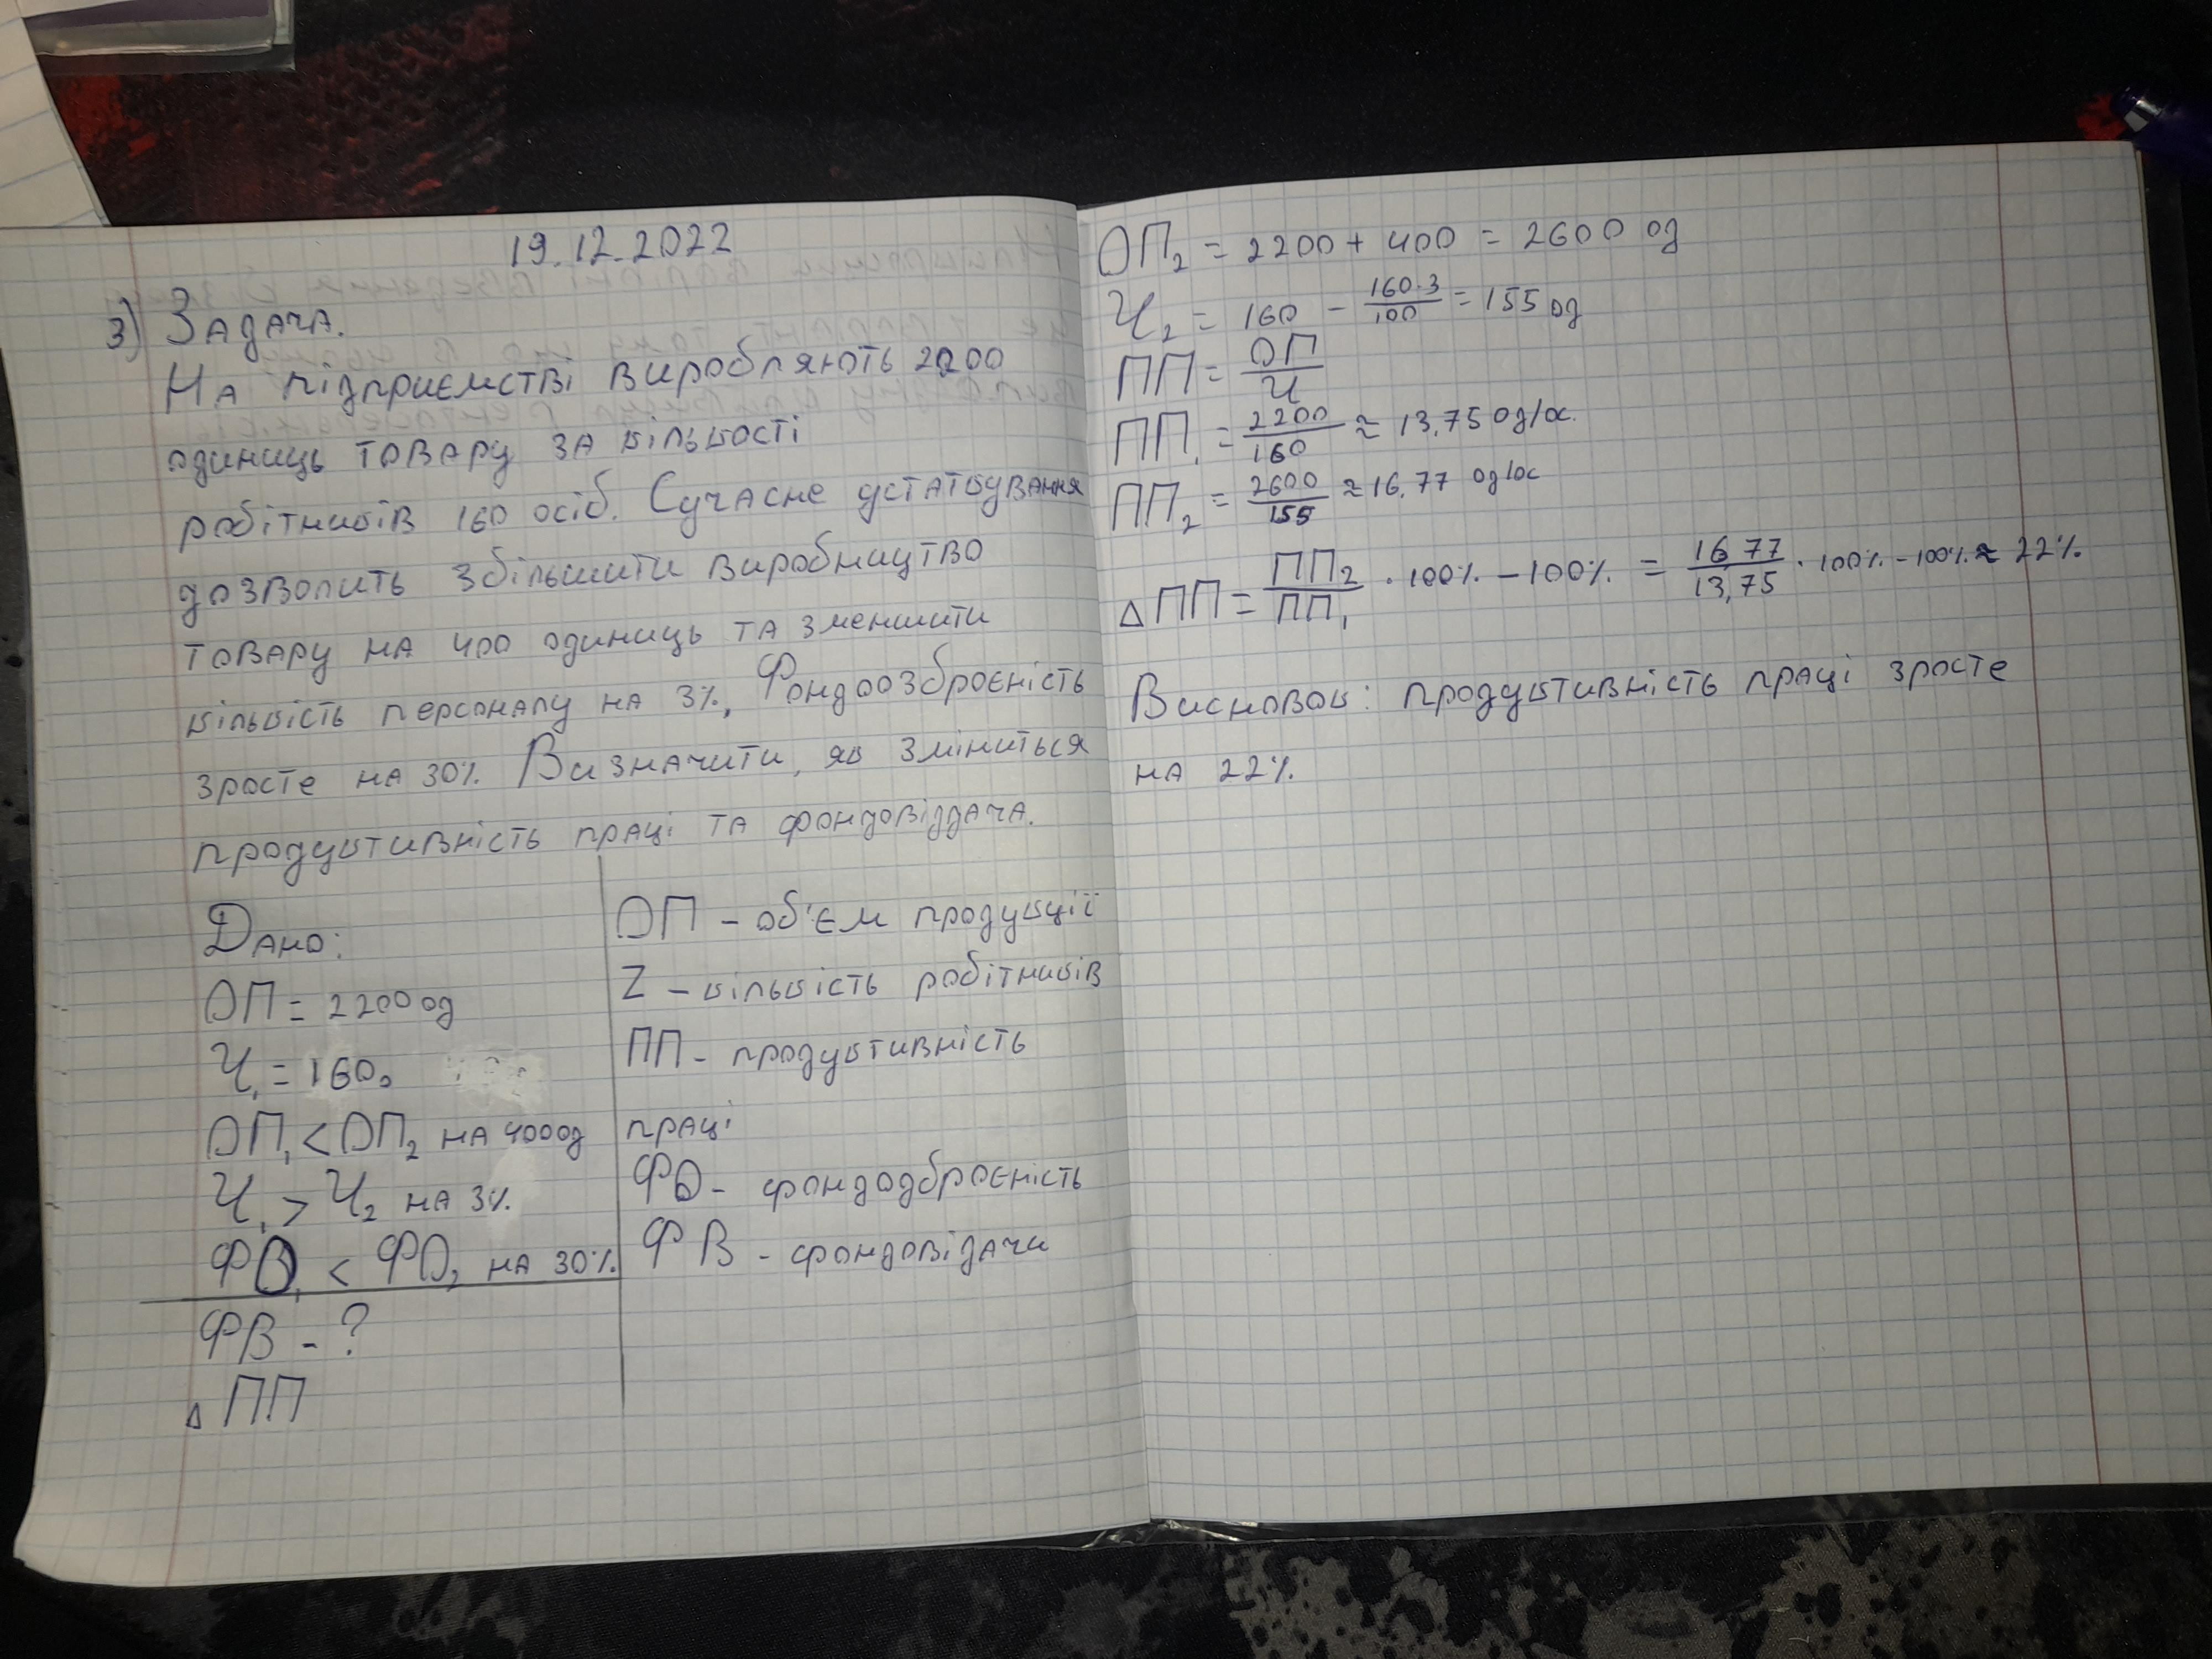 19.12.2022
3) Задача.
На підприємстві виробляють 2200
одиниць товару за кількості
робітників 160 осіб. Сучасне устаткування
дозволить збільшити виробництво
товару на 400 одиниць та зменшити
кількість персоналу на 3%, Фондоозброєність
зросте на 30%. Визначити, як зміниться
продуктивність праці та фондовіддача.
Дано:
ОП = 2200 од
Ч₁ = 160о
ОП₁ < ОП₂ на 400од
Ч₁ > Ч₂ на 3%
ФО₁ < ФО₂ на 30%
ФВ - ?
△ ПП
ОП - об'єм продукції
Z - кількість робітників
ПП - продуктивність
праці
ФО - фондодброєність
ФВ - фондовідачи
ОП₂ = 2200 + 400 = 2600 од
Ч₂ = 160 - 160·3/100 = 155 од
ПП = ОП/Ч
ПП₁ = 2200/160 ≈ 13,75 од/ос.
ПП₂ = 2600/155 ≈ 16,77 од/ос
△ПП = ПП₂/ПП₁ · 100% - 100% = 16,77/13,75 · 100% - 100% ≈ 22%
Висновок: продуктивність праці зросте
на 22%.